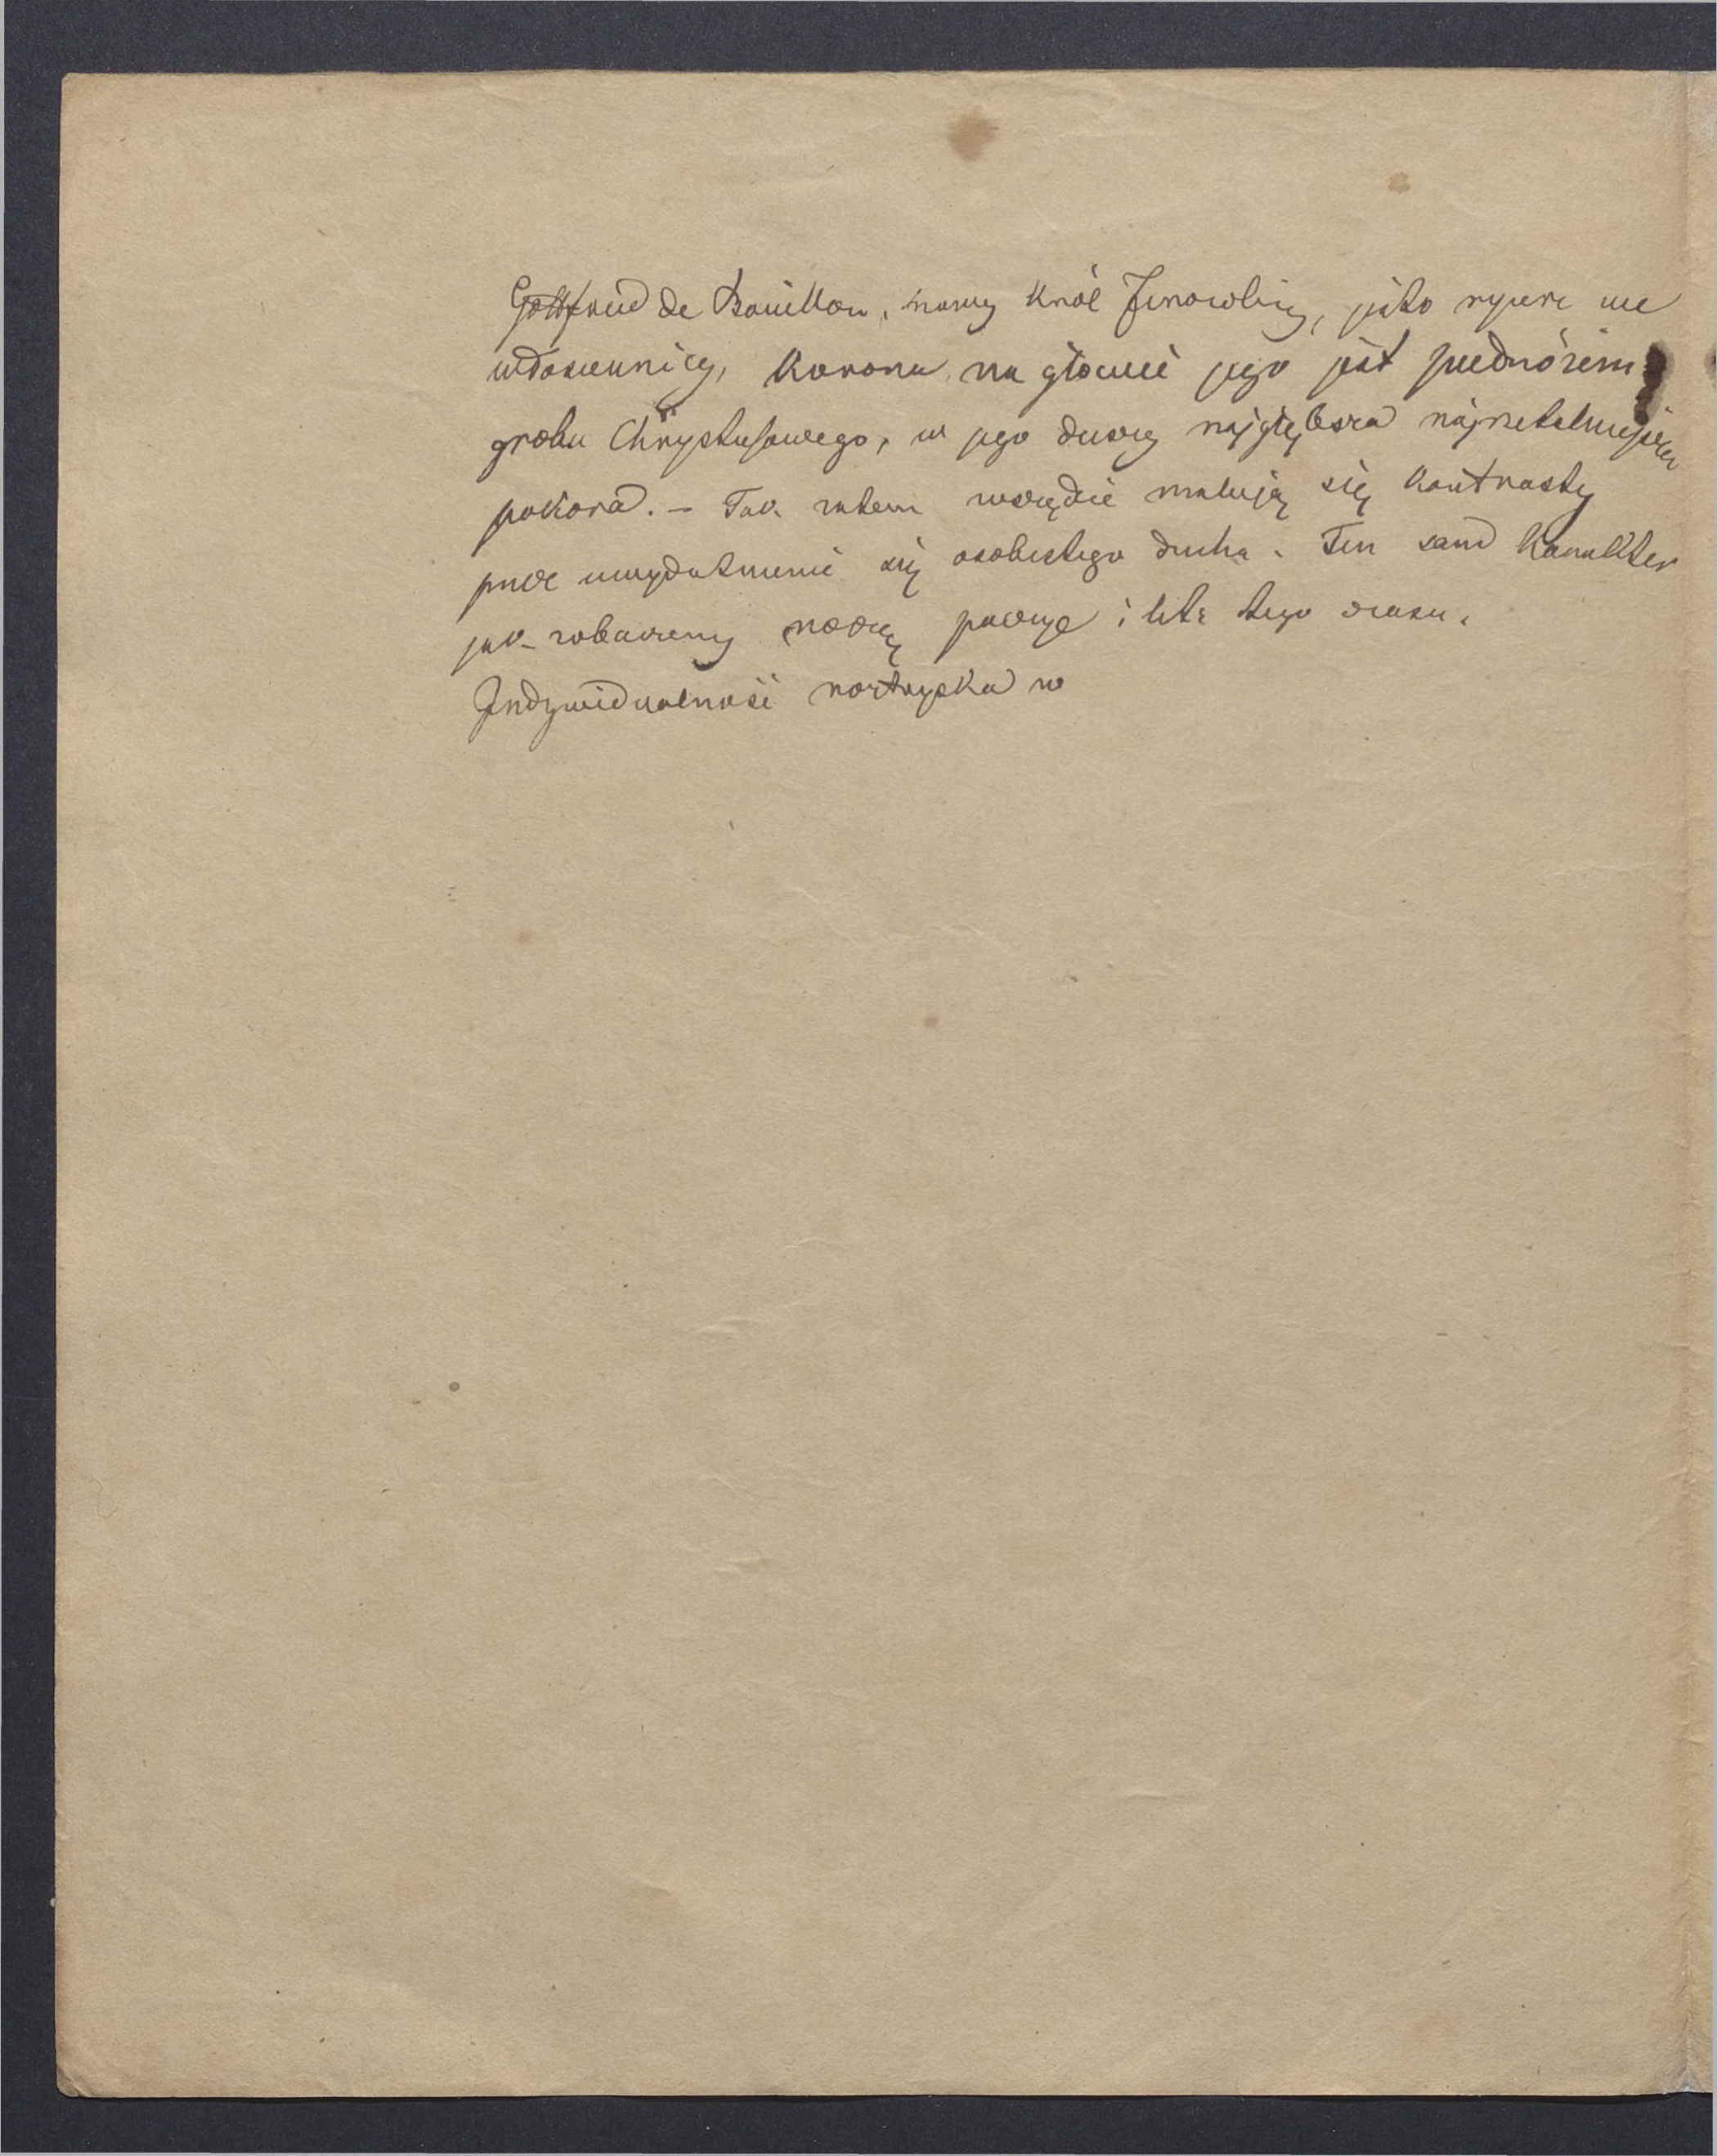 Gottfried de Bouillon, nowy Król Jerozolimy, jako rycerz we
włosiennicy, Korona na głowie jego jest podnóżem
grobu Chrystusowego, w jego duszy najgłębsza najrzetelniejsza
pokora. – Tak zatem wszędzie malują się kontrasty
przez uwydatnienie się osobistego ducha. Ten sam Karakter
jak zobaczemy noszą poezye i lit: tego czasu.
Indywidualność artystyka w